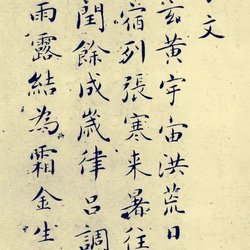 文
玄黃宇宙洪荒日
宿列張寒来暑往
閏餘成歲律呂調
雨露結為霜金生